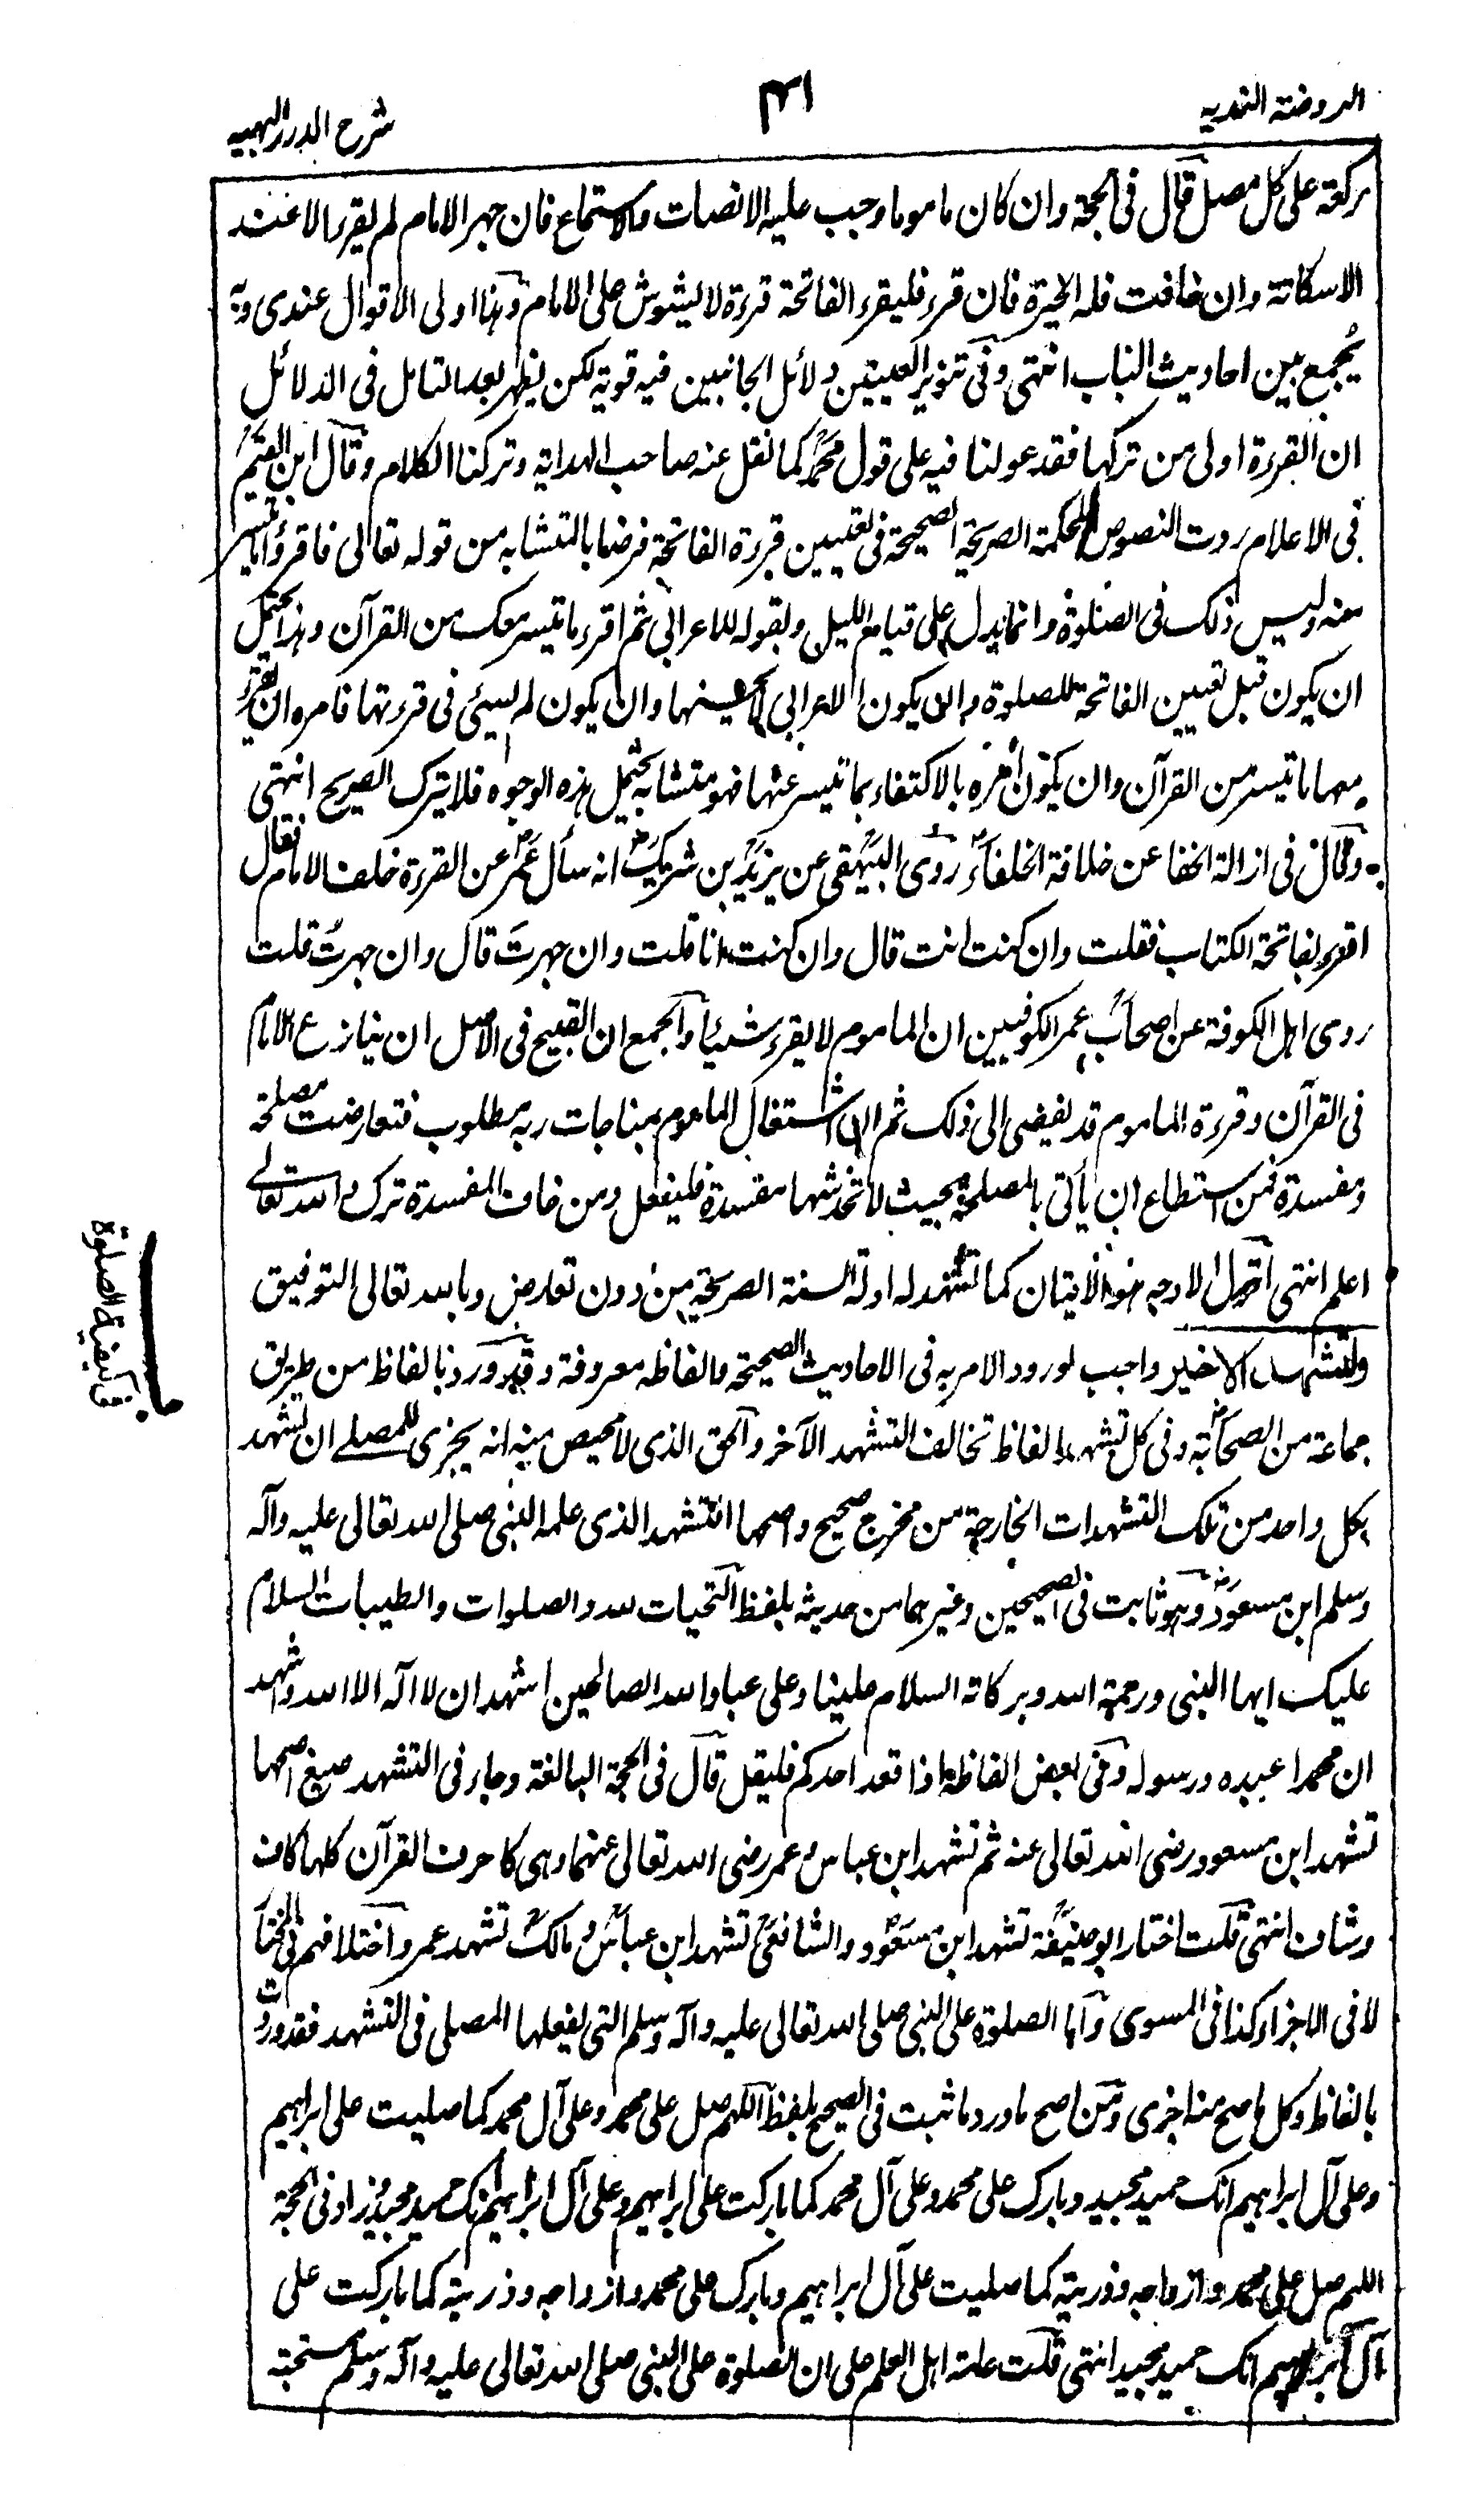 الروضة الندية
٤١
شرح الدرر البهية
ركعة على كل مصل قال فى الحجة وان كان ماموما وجب عليه الانصات والاستماع فان جهر الامام لم يقرء الا عند
الاسكاتة وان خافت فله الخيرة فان قرء فليقرء الفاتحة قرءة لا يشوش على الامام وهذا اولى الاقوال عندى وبه
يُجمع بين احاديث الباب انتهى وفى تنوير العينين دلائل الجانبين فيه قوية لكن يظهر بعد التامل فى الدلائل
ان القرءة اولى من تركها فقد عولنا فيه على قول محمد كما نقل عنه صاحب الهداية وتركنا الكلام وقال ابن القيم
فى الاعلام ردت النصوص المحكمة الصريحة الصحيحة فى تعيين قرءة الفاتحة فرضا بالمتشابه من قوله تعالى فاقرؤا ما تيسر
منه وليس ذلك فى الصلوة وانما يدل على قيام الليل وبقوله للاعرابى ثم اقرء ما تيسر معك من القرآن وهذا يحتمل
ان يكون قبل تعيين الفاتحة للصلوة وان يكون الاعرابى لا يحسنها وان يكون لم يسئ فى قرءتها فامره ان يقرء
معها ما تيسر من القرآن وان يكون امره بالاكتفاء بما تيسر عنها فهو متشابه يحتمل هذه الوجوه فلا يترك الصريح انتهى
وقال فى ازالة الخفا عن خلافة الخلفاء روى البيهقى عن يزيد بن شريك انه سأل عمر عن القرءة خلف الامام فقال
اقرء بفاتحة الكتاب فقلت وان كنت انت قال وان كنت انا قلت وان جهرتَ قال وان جهرتُ قلت
روى اهل الكوفة عن اصحاب عمر الكوفيين ان الماموم لا يقرء شيئا والجمع ان القبيح فى الاصل ان ينازع الامام
فى القرآن وقرءة الماموم قد يفضى الى ذلك ثم ان اشتغال الماموم بمناجات ربه مطلوب فتعارضت مصلحة
ومفسدة فمن استطاع ان يأتى بالمصلحة بحيث لا تخدشها مفسدة فليفعل ومن خاف المفسدة ترك والله تعالى
اعلم انتهى اقول الاوجه هو الاتيان كما تشهد له ادلة السنة الصريحة من دون تعارض وبالله تعالى التوفيق
والتشهد الاخير واجب لورود الامر به فى الاحاديث الصحيحة والفاظه معروفة وقد ورد بالفاظ من طريق
جماعة من الصحابة وفى كل تشهد الفاظ تخالف التشهد الآخر والحق الذى لا محيص منه انه يجزى للمصلے ان يتشهد
بكل واحد من تلك التشهدات الخارجة من مخرج صحيح واصحها التشهد الذى علمه النبى صلى الله تعالى عليه وآله
وسلم ابن مسعود وهو ثابت فى الصحيحين وغيرهما من حديثه بلفظ التحيات لله والصلوات والطيبات السلام
عليك ايها النبى ورحمة الله وبركاته السلام علينا وعلى عباد الله الصالحين اشهد ان لا اله الا الله واشهد
ان محمدا عبده ورسوله وفى بعض الفاظه اذا قعد احدكم فليقل قال فى الحجة البالغة وجاء فى التشهد صيغ اصحها
تشهد ابن مسعود رضى الله تعالى عنه ثم تشهد ابن عباس وعمر رضى الله تعالى عنهما وهى كاحرف القرآن كلها كاف
وشاف انتهى قلت اختار ابو حنيفة تشهد ابن مسعود والشافعى تشهد ابن عباس ومالك تشهد عمر واختلافهم فى المختار
لا فى الاجزاء كذا فى المسوى واما الصلوة على النبى صلى الله تعالى عليه وآله وسلم التى يفعلها المصلى فى التشهد فقد وردت
بالفاظ وكل ما صح منها اجزى ومن اصح ما ورد ما ثبت فى الصحيح بلفظ اللهم صل على محمد وعلى آل محمد كما صليت على ابراهيم
وعلى آل ابراهيم انك حميد مجيد وبارك على محمد وعلى آل محمد كما باركت على ابراهيم وعلى آل ابراهيم انك حميد مجيد وزاد فى الحجة
اللهم صل على محمد وازواجه وذريته كما صليت على آل ابراهيم وبارك على محمد وازواجه وذريته كما باركت على
آل ابراهيم انك حميد مجيد انتهى قلت عامة اهل العلم على ان الصلوة على النبى صلى الله تعالى عليه وآله وسلم مستحبة
ف كيفية الصلوة